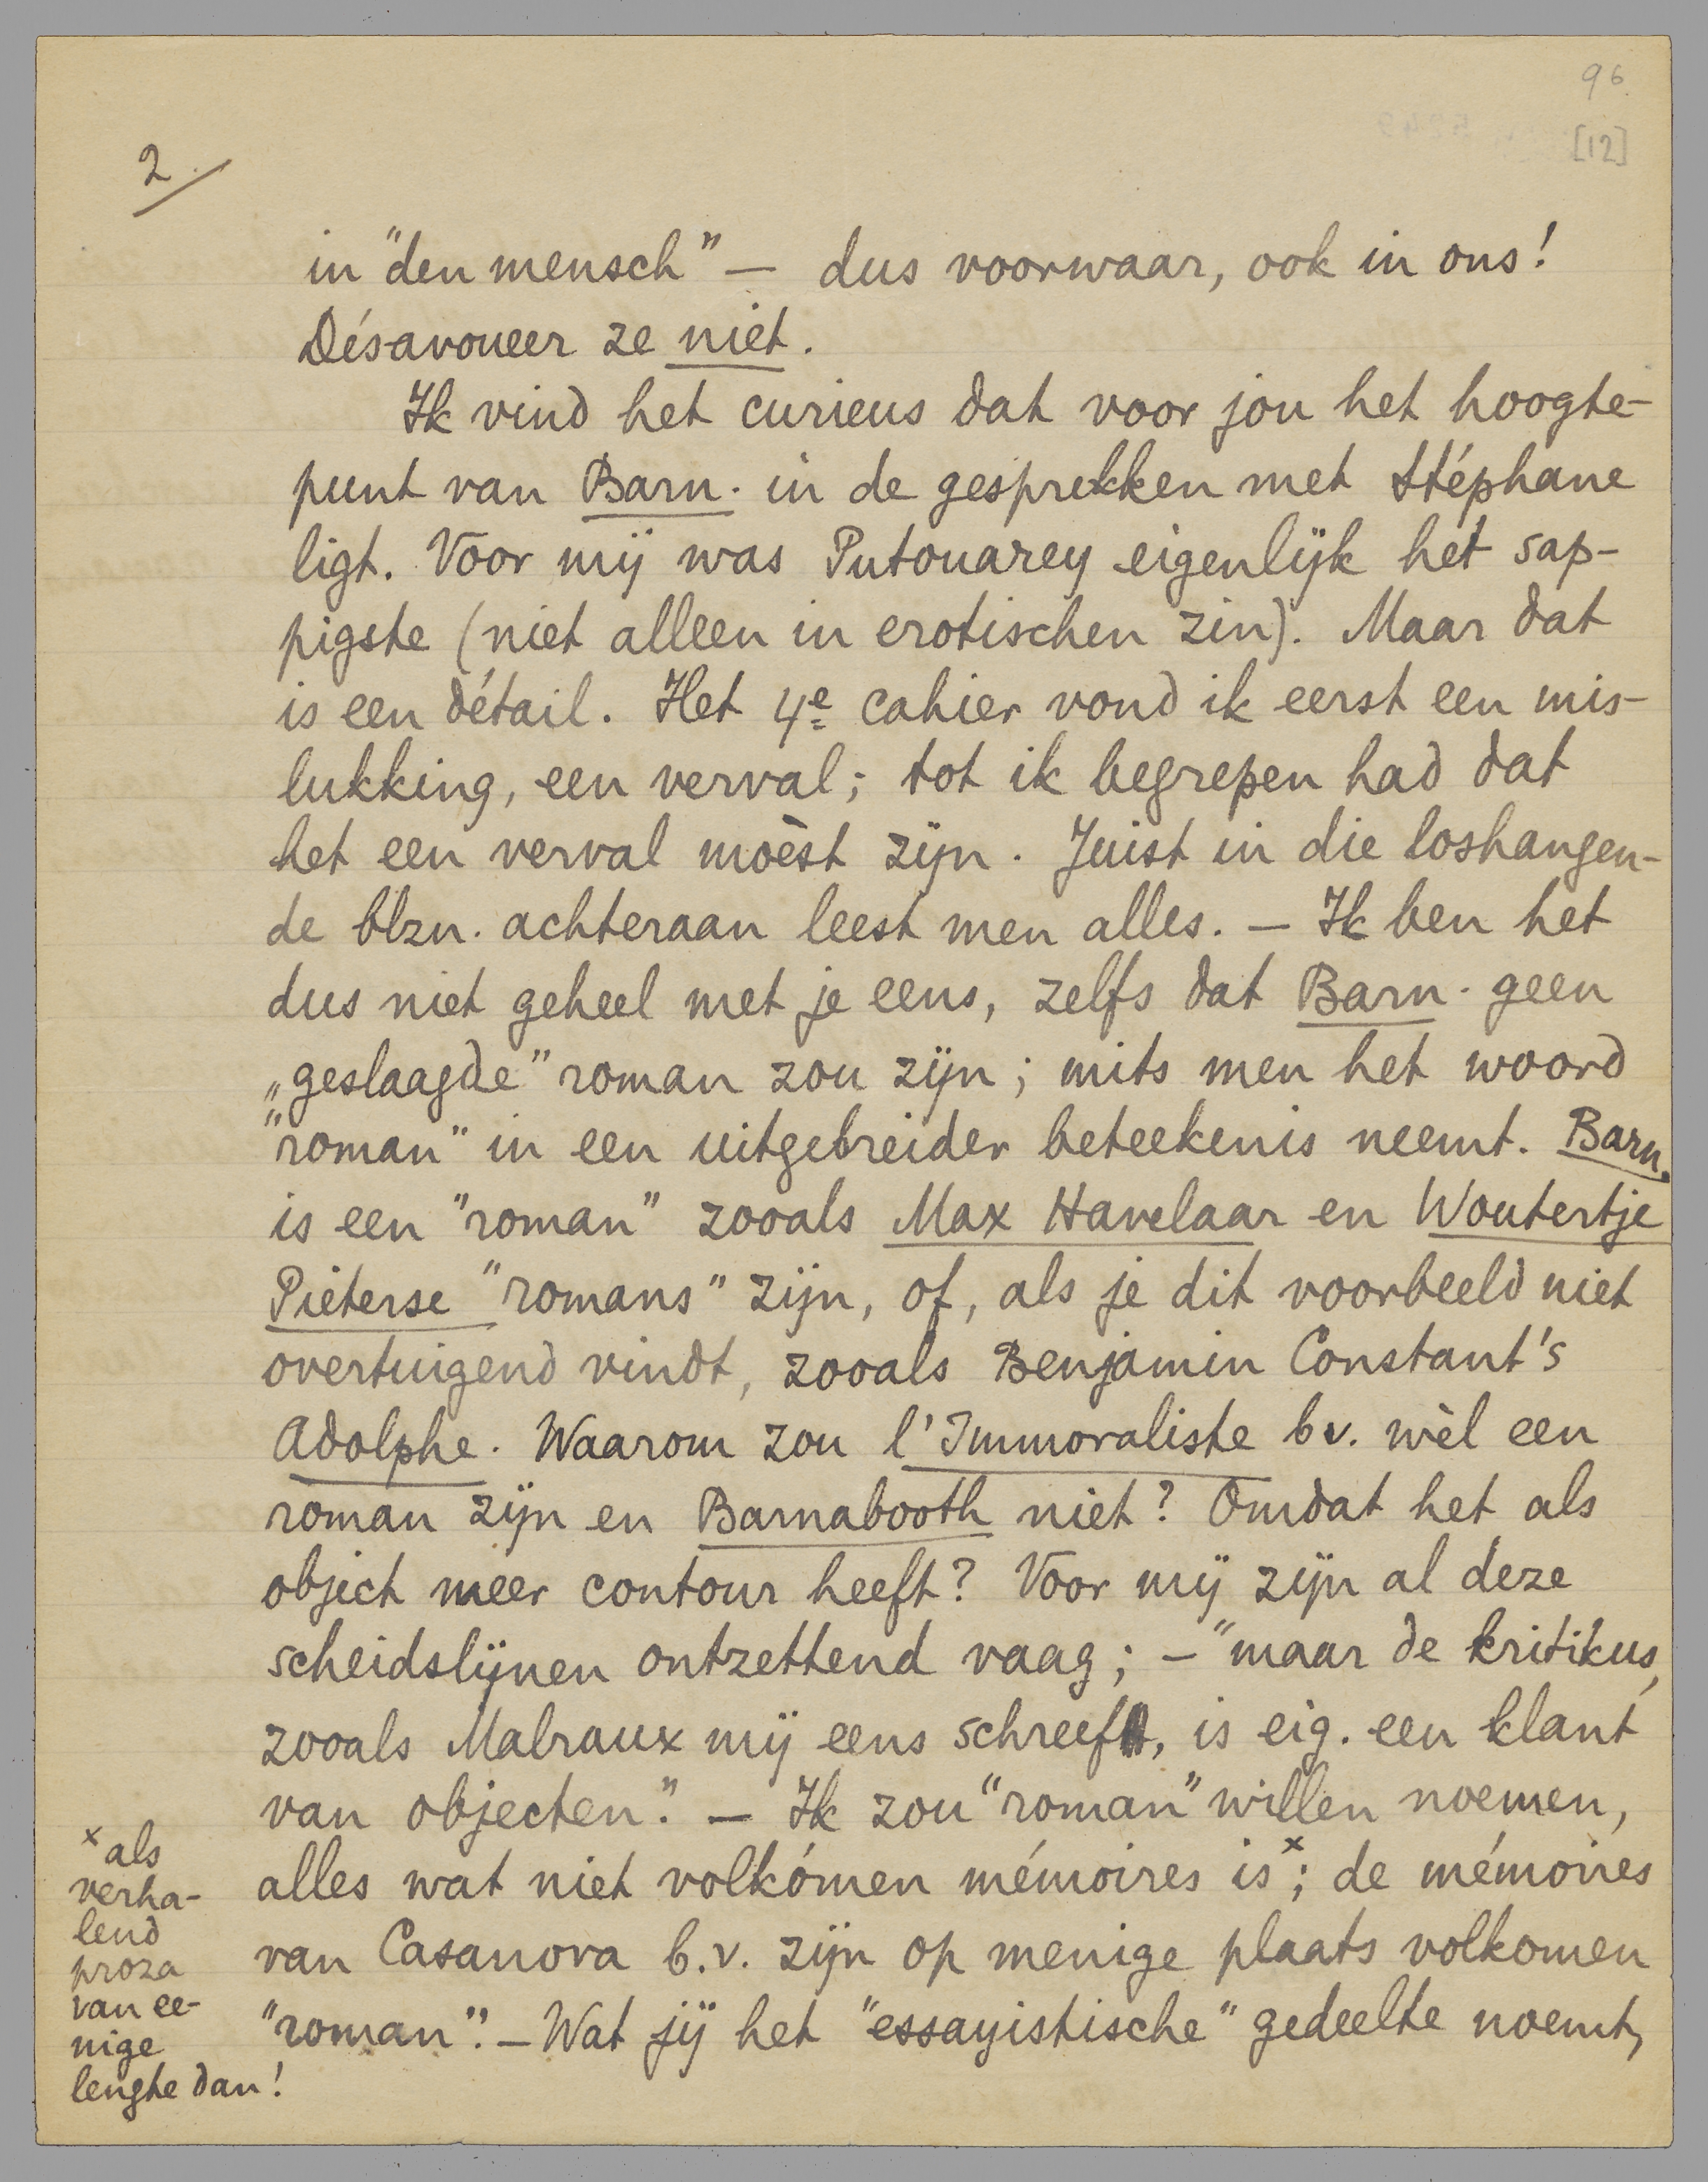 96
[12]
2
in "den mensch" — dus voorwaar, ook in ons!
Désavoueer ze niet.
Ik vind het curieus dat voor jou het hoogte-
punt van Barn. in de gesprekken met Stéphane
ligt. Voor mij was Putouarey eigenlijk het sap-
pigste (niet alleen in erotischen zin). Maar dat
is een détail. Het 4e cahier vond ik eerst een mis-
lukking, een verval; tot ik begrepen had dat
het een verval moèst zijn. Juist in die loshangen-
de blzn. achteraan leest men alles. — Ik ben het
dus niet geheel met je eens, zelfs dat Barn. geen
„geslaagde" roman zou zijn; mits men het woord
"roman" in een uitgebreider beteekenis neemt. Barn.
is een "roman" zooals Max Havelaar en Woutertje
Pieterse "romans" zijn, of, als je dit voorbeeld niet
overtuigend vindt, zooals Benjamin Constant's
Adolphe. Waarom zou l'Immoraliste bv. wèl een
roman zijn en Barnabooth niet? Omdat het als
object meer contour heeft? Voor mij zijn al deze
scheidslijnen ontzettend vaag; — "maar de kritikus,
zooals Malraux mij eens schreef, is eig. een klant
van objecten." — Ik zou "roman" willen noemen,
alles wat niet volkómen mémoires is x; de mémoires
van Casanova b.v. zijn op menige plaats volkomen
"roman". — Wat jij het "essayistische" gedeelte noemt,
x als
verha-
lend
proza
van ee-
nige
lengte dan!